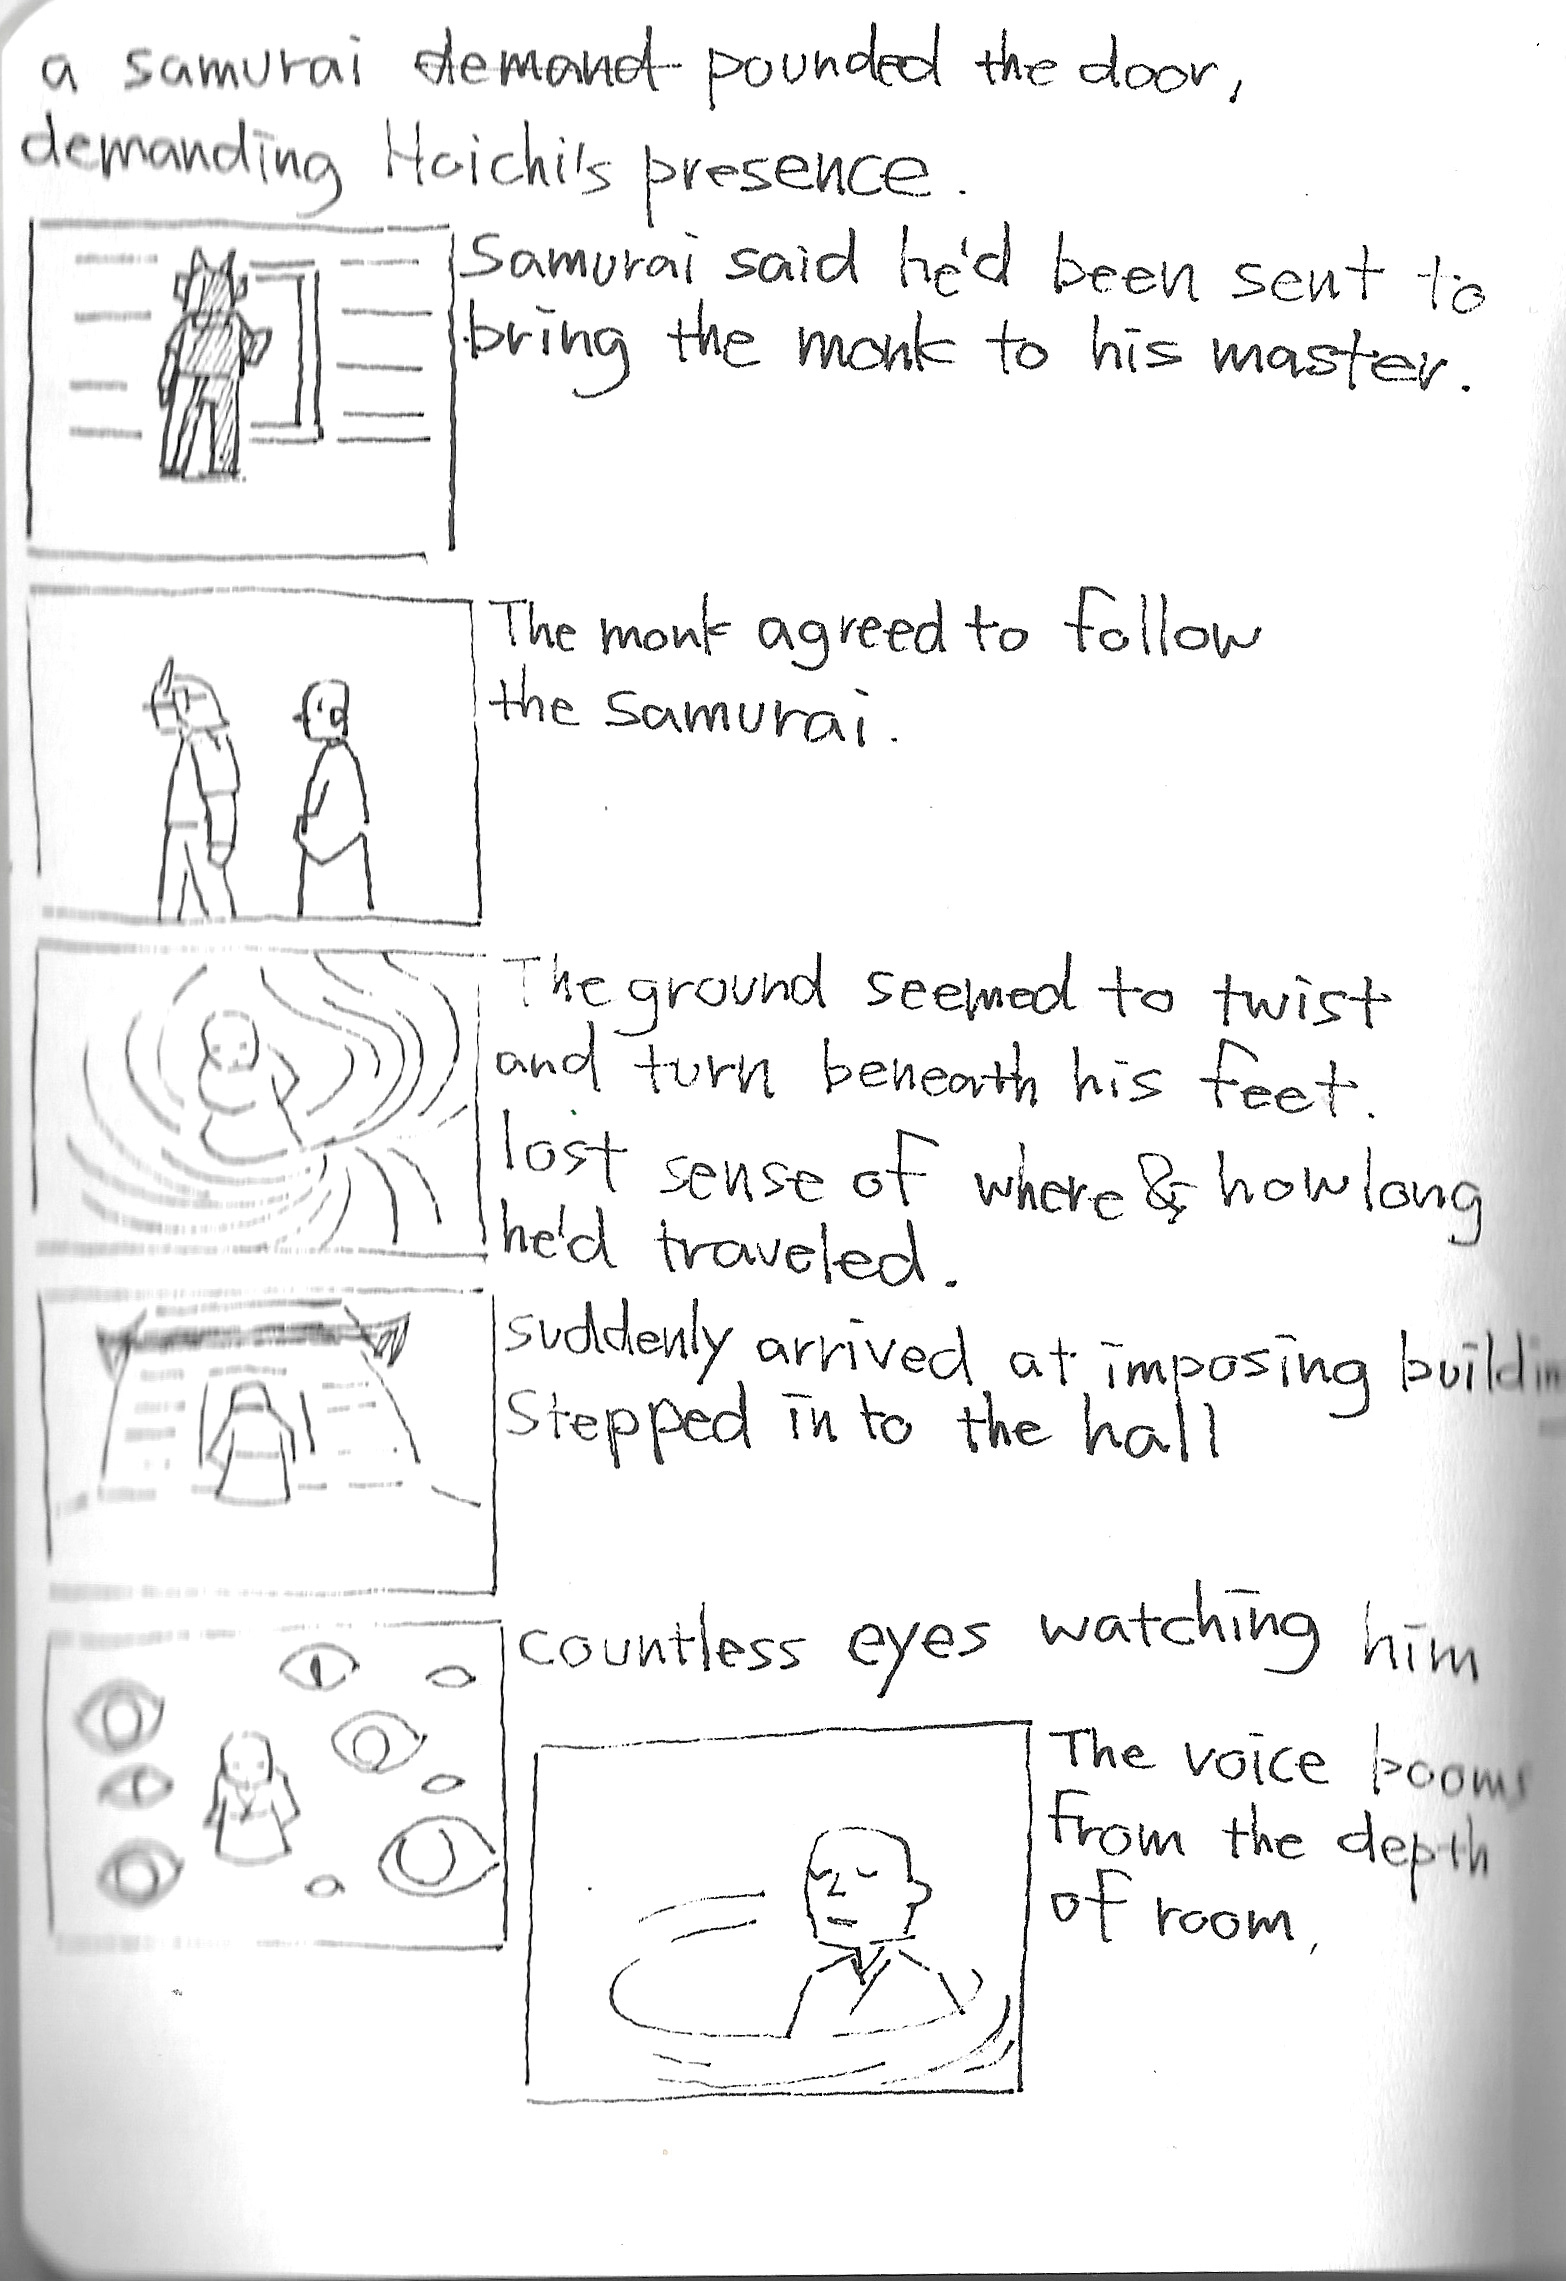 a samurai demand pounded the door,
demanding Hoichi's presence.
Samurai said he'd been sent to
bring the monk to his master.
The monk agreed to follow
the samurai.
The ground seemed to twist
and turn beneath his feet.
lost sense of where & how long
he'd traveled.
suddenly arrived at imposing buildin
Stepped in to the hall
countless eyes watching him
The voice booms
from the depth
of room,